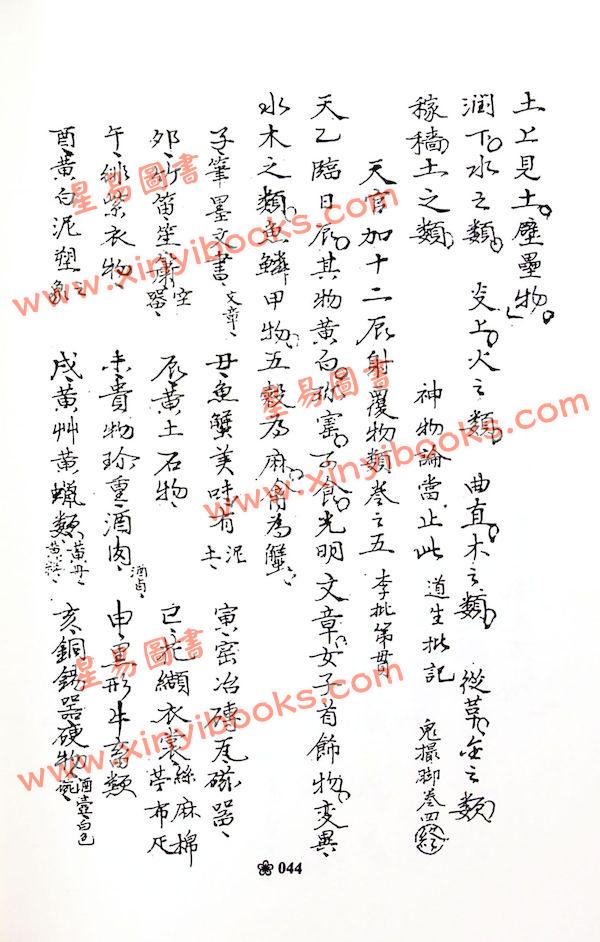 土上見土。壁壘物。
潤下。水之類。 炎上。火之類。 曲直。木之類。 從革。金之類
稼穡土之類。 神物論當止此 道生批記 鬼撮脚卷四終
天官加十二辰射覆物類卷之五 李批第貫
天乙臨日辰。其物黄白 可食。光明文章。女子首飾物。变異、
水木之類。魚鱗甲物。五穀為麻 為蟹、
子、筆墨文書、文章、 丑、魚蟹美味、有泥土、 寅、窑冶磚瓦磁器、
卯、竹笛笙簫、空器、 辰、黄土石物、 巳、花纈衣裳、絲麻棉苧布疋
午、緋紫衣物、 未、貴物珍重、酒肉、 申、異形、牛畜類
酉、黄白泥塑 之 戌、黄艸黄蠟類 黄丹、 亥、銅錫器硬物 酒壺白色
044
星易圖書
www.xinyibooks.com
星易圖書
www.xinyibooks.com
星易圖書
www.xinyibooks.com